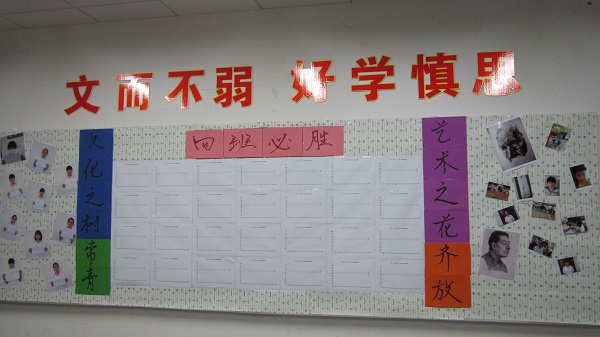 文而不弱 好学慎思
四班必胜
文化之树常青
艺术之花齐放